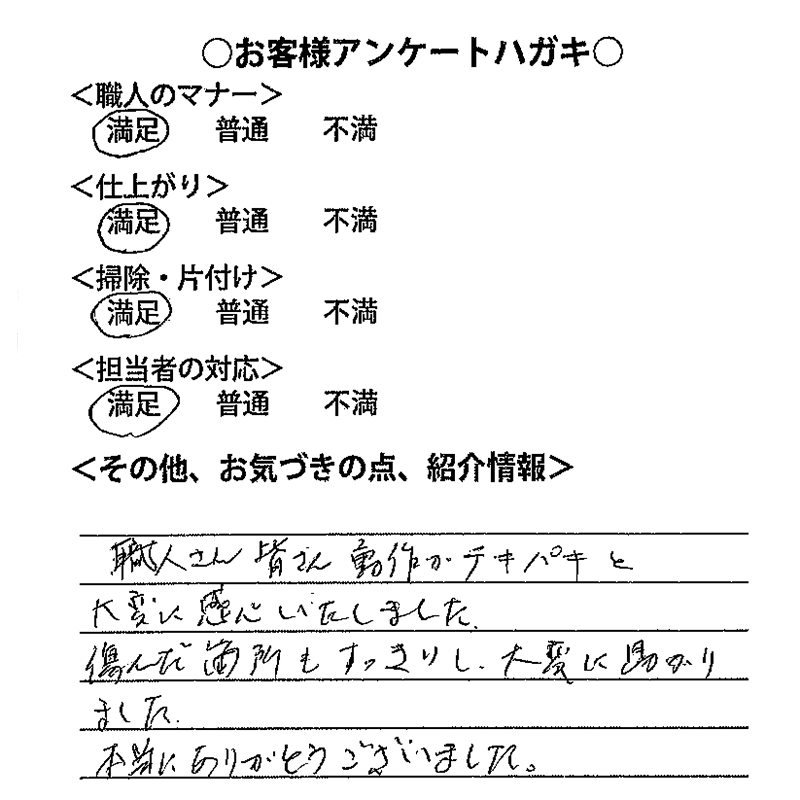 ○お客様アンケートハガキ○
<職人のマナー>
満足 普通 不満
<仕上がり>
満足 普通 不満
<掃除・片付け>
満足 普通 不満
<担当者の対応>
満足 普通 不満
<その他、お気づきの点、紹介情報>
職人さん皆さん動作がテキパキと
大変に感心いたしました。
傷んだ箇所もすっきりし、大変に助かり
ました。
本当にありがとうございました。